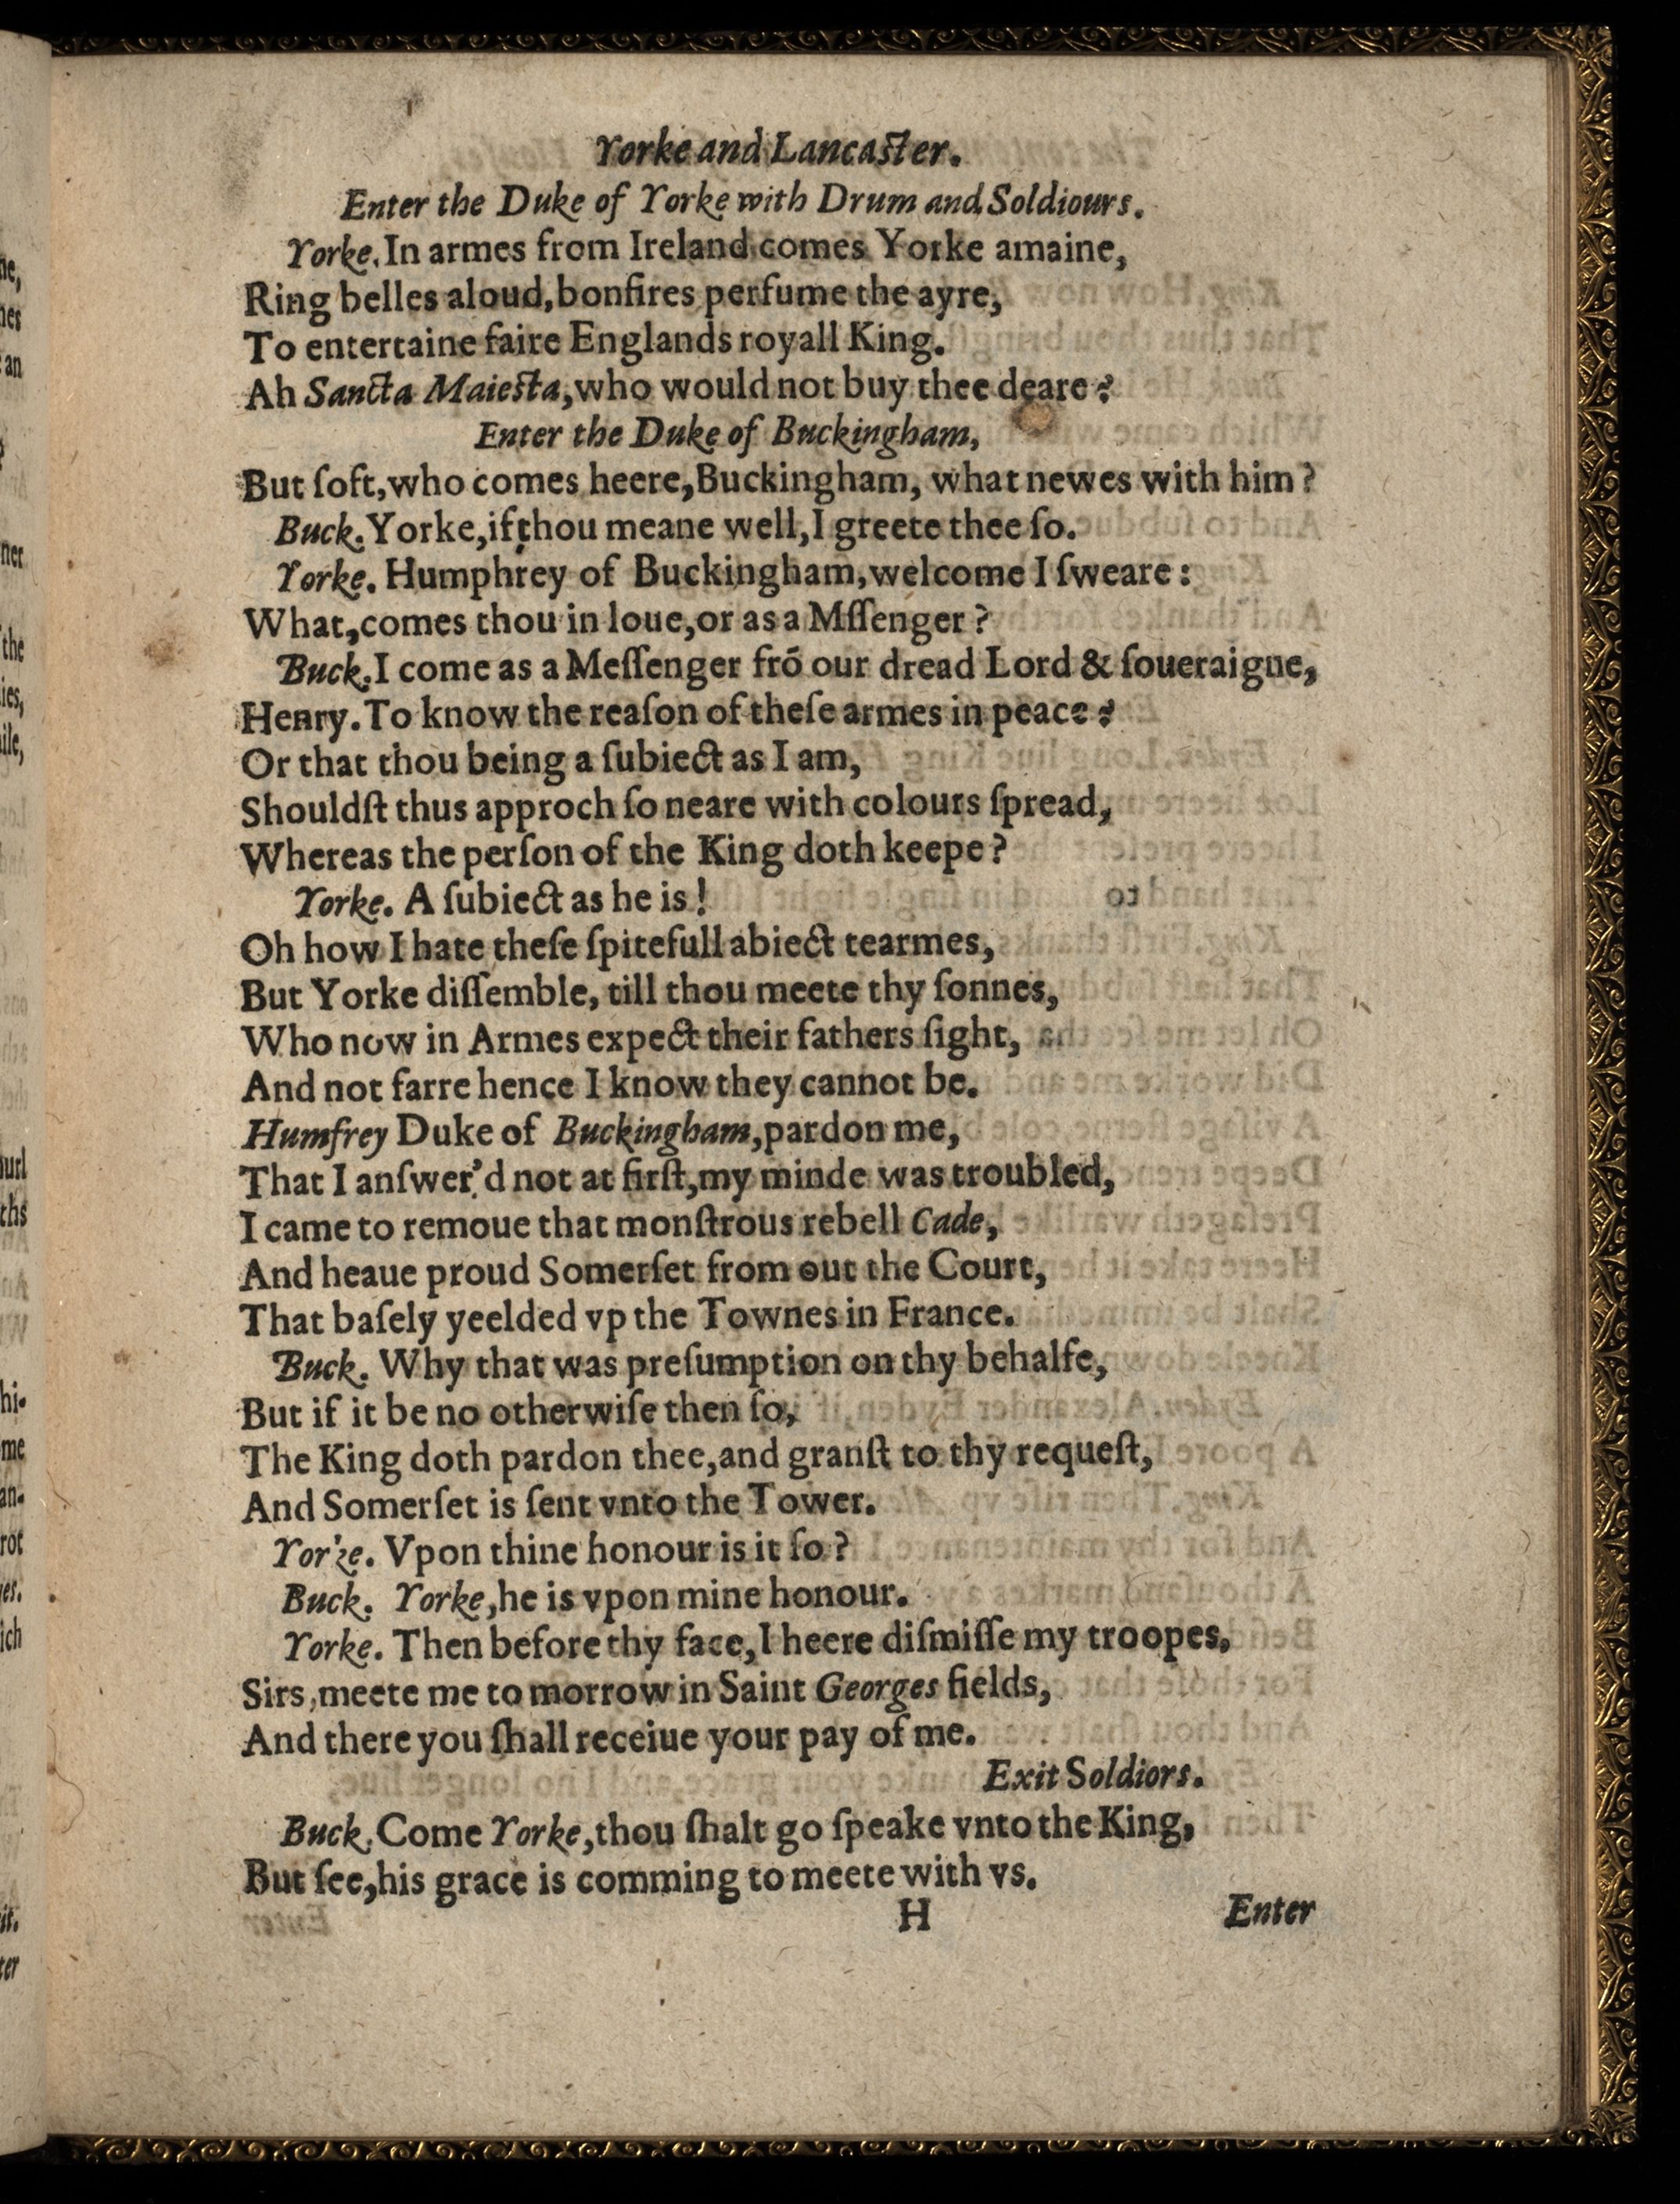 Yorke and Lancaſter.
Enter the Duke of Yorke with Drum and Soldiours.
Yorke. In armes from Ireland comes Yorke amaine,
Ring belles aloud, bonfires perfume the ayre,
To entertaine faire Englands royall King.
Ah Sancta Maieſta, who would not buy thee deare?
Enter the Duke of Buckingham,
But ſoft, who comes heere, Buckingham, what newes with him?
Buck. Yorke, if thou meane well, I greete thee ſo.
Yorke. Humphrey of Buckingham, welcome I ſweare:
What, comes thou in loue, or as a Mſſenger?
Buck. I come as a Meſſenger frō our dread Lord & ſoueraigne,
Henry. To know the reaſon of theſe armes in peace?
Or that thou being a ſubiect as I am,
Shouldſt thus approch ſo neare with colours ſpread,
Whereas the perſon of the King doth keepe?
Yorke. A ſubiect as he is!
Oh how I hate theſe ſpitefull abiect tearmes,
But Yorke diſſemble, till thou meete thy ſonnes,
Who now in Armes expect their fathers ſight,
And not farre hence I know they cannot be.
Humfrey Duke of Buckingham, pardon me,
That I anſwer'd not at firſt, my minde was troubled,
I came to remoue that monſtrous rebell Cade,
And heaue proud Somerſet from out the Court,
That baſely yeelded vp the Townes in France.
Buck. Why that was preſumption on thy behalfe,
But if it be no otherwiſe then ſo,
The King doth pardon thee, and granſt to thy requeſt,
And Somerſet is ſent vnto the Tower.
Yorke. Vpon thine honour is it ſo?
Buck. Yorke, he is vpon mine honour.
Yorke. Then before thy face, I heere diſmiſſe my troopes,
Sirs, meete me to morrow in Saint Georges fields,
And there you ſhall receiue your pay of me.
Exit Soldiors.
Buck. Come Yorke, thou ſhalt go ſpeake vnto the King,
But ſee, his grace is comming to meete with vs.
H Enter